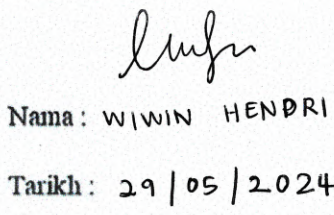 Nama : WIWIN HENDRI
Tarikh : 29/05/2024